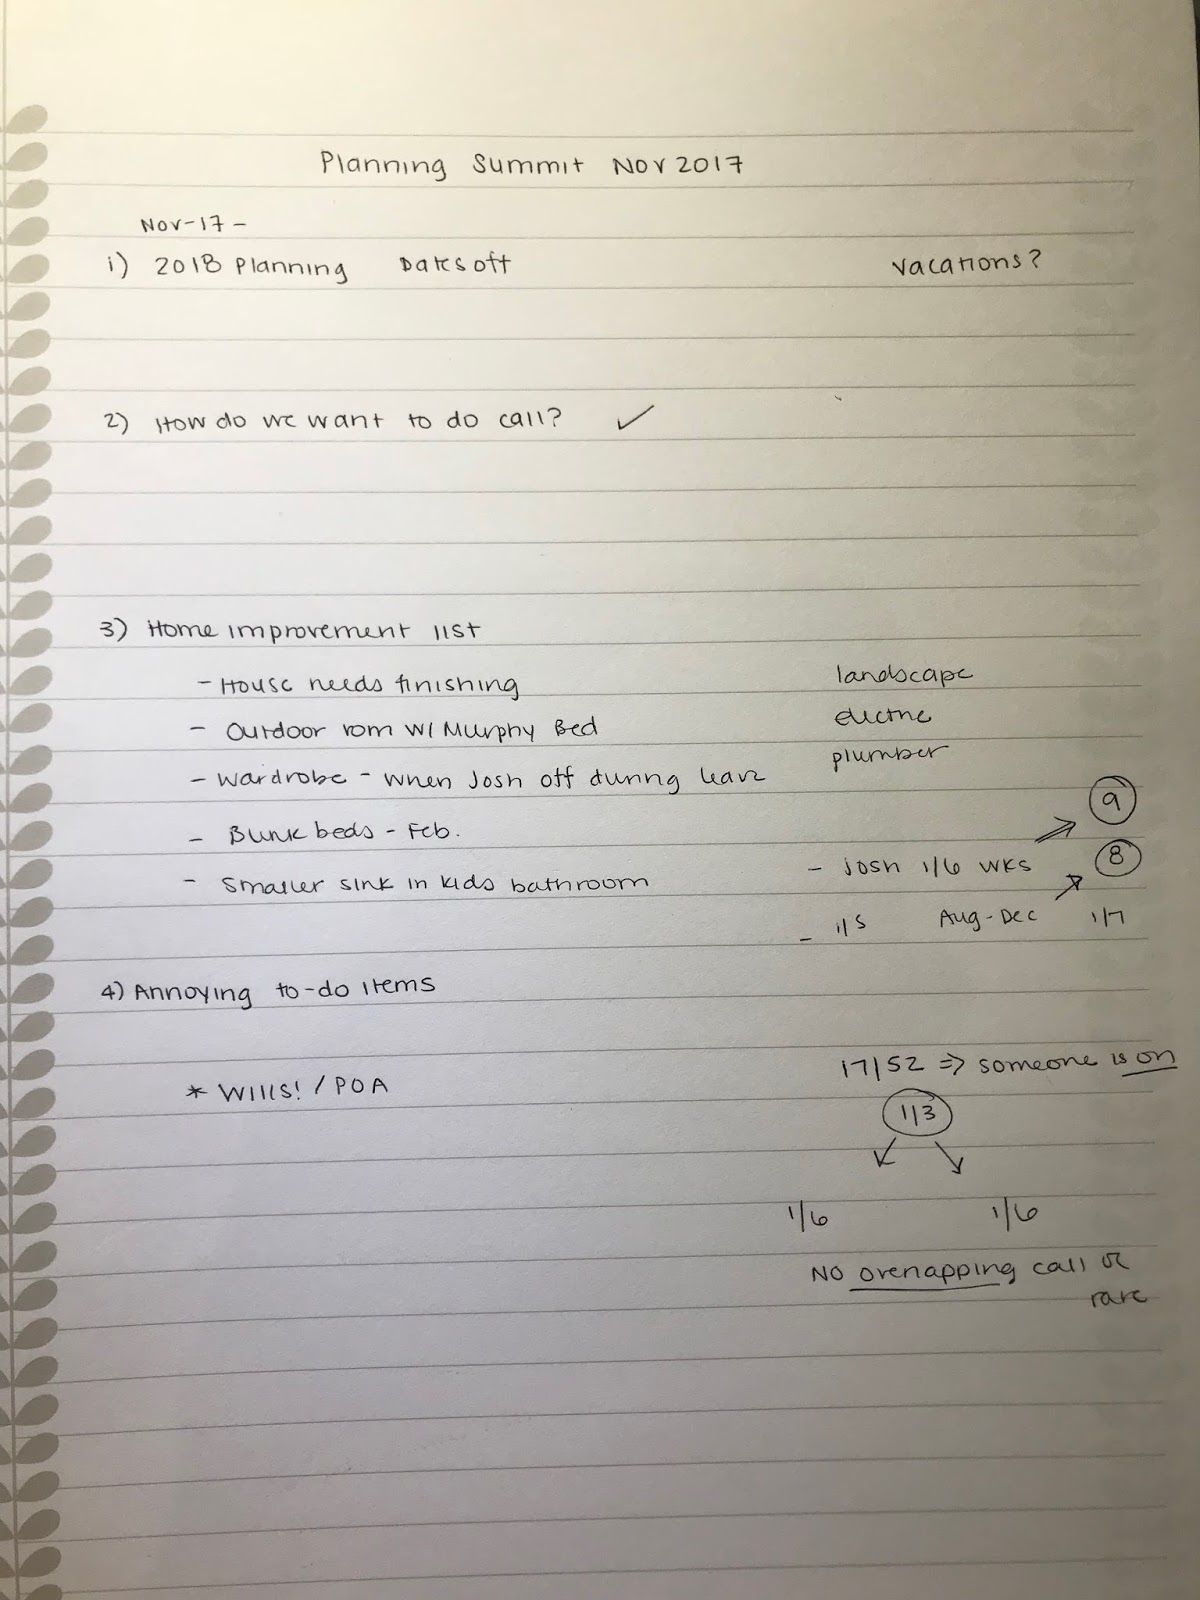 Planning Summit Nov 2017
Nov-17 -
1) 2018 Planning Dates off vacations?
2) How do we want to do call? ✓
3) Home improvement list
- House needs finishing landscape
- Outdoor room w/ Murphy Bed electric
- wardrobe - when Josh off during leave plumber
- Bunk beds - Feb. 9
- Smaller sink in kids bathroom - Josh 1/6 wks 8
- 1/5 Aug-Dec 1/7
4) Annoying to-do items
17/52 ⇒ someone is on
* Wills! / POA
1/3
1/6 1/6
No overlapping call or
rare